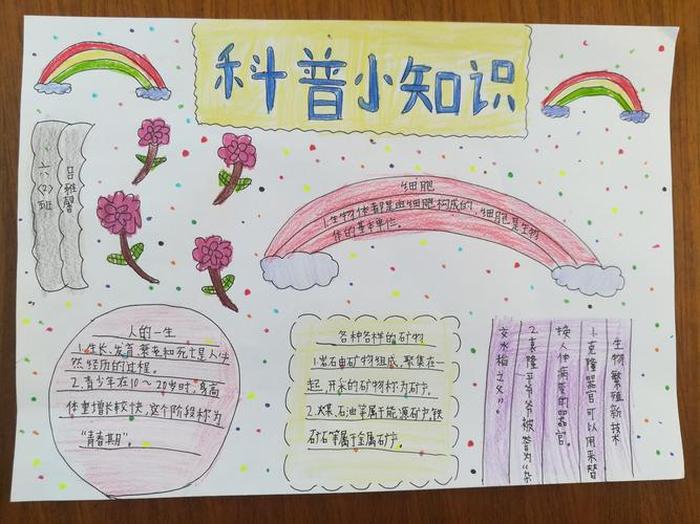 科普小知识
六〈2〉班
吕雅馨
细胞
1.生物体都是由细胞构成的,细胞是生物
体的基本单位。
人的一生
1.生长、发育、衰老和死亡是人生必
然经历的过程。
2.青少年在10~20岁时,身高
体重增长较快,这个阶段称为
“青春期”。
各种各样的矿物
1.岩石由矿物组成,聚集在一
起,开采的矿物称为矿产。
2.煤、石油等属于能源矿产,铁
矿石等属于金属矿产。
生物繁殖新技术
1.克隆器官可以用来替
换人体病变的器官。
2.袁隆平爷爷被誉为“杂
交水稻之父”。